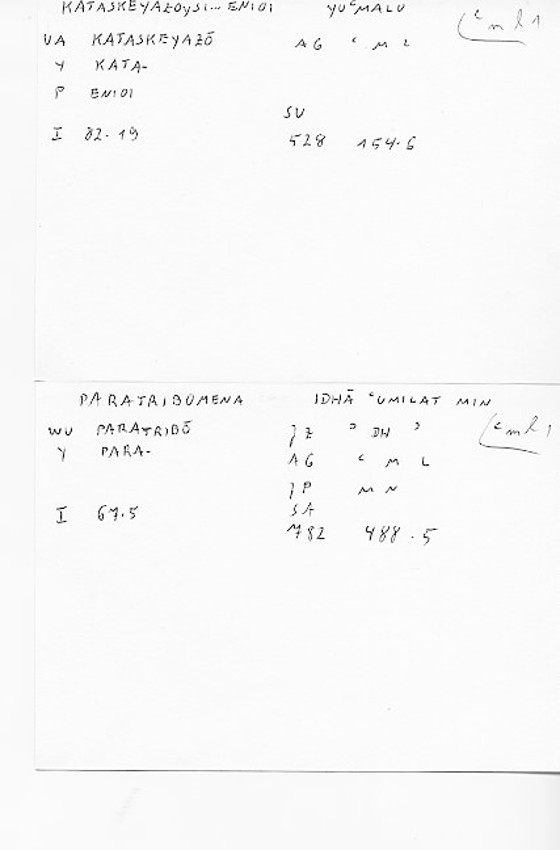 KATASKEYAZOYSI... ENIOI YUʿMALU
(ʿml 1
UA KATASKEYAZŌ AG ʿ M L
Y KATA-
P ENIOI
SU
I 82.19 528 154.6
PARATRIBOMENA IDHĀ ʿUMILAT MIN
WU PARATRIBŌ JZ ʾ DH ʾ (ʿml 1
Y PARA- AG ʿ M L
JP M N
I 67.5 SA
782 488.5